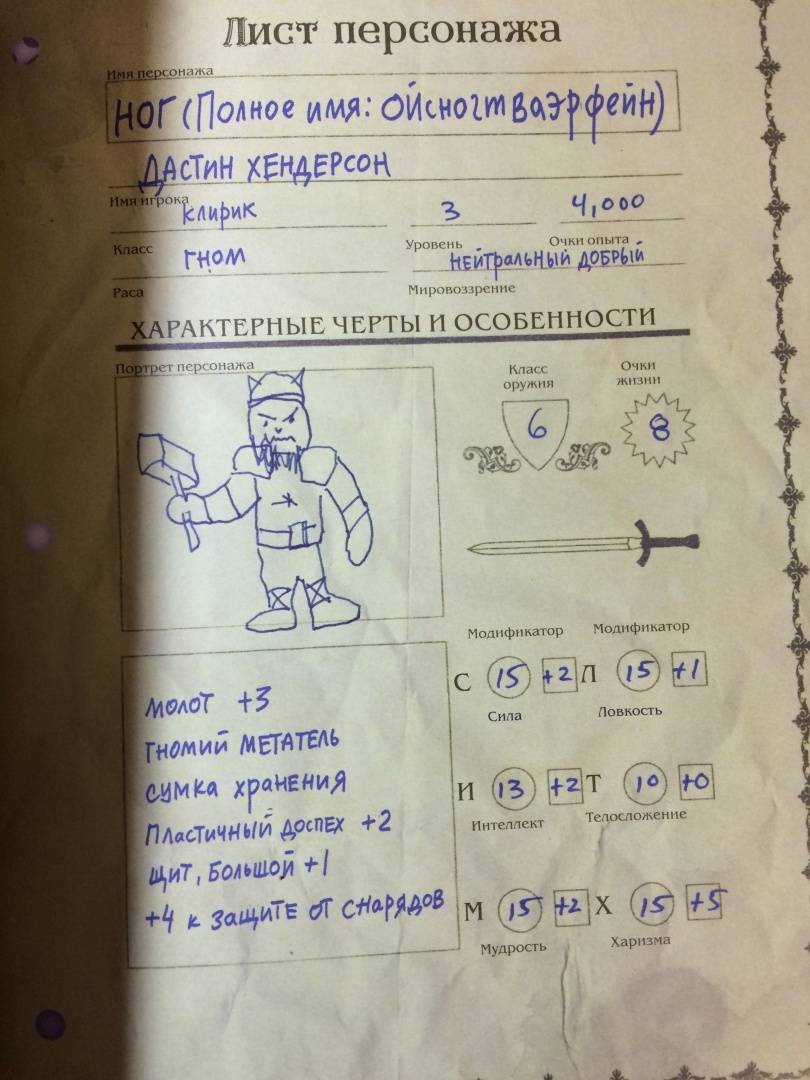 Лист персонажа
Имя персонажа
НОГ (Полное имя: ОЙСНОГТВАЭРФЕЙН)
ДАСТИН ХЕНДЕРСОН
Имя игрока
клирик 3 4,000
Класс Уровень Очки опыта
гном НЕЙТРАЛЬНЫЙ ДОБРЫЙ
Раса Мировоззрение
ХАРАКТЕРНЫЕ ЧЕРТЫ И ОСОБЕННОСТИ
Портрет персонажа
Класс оружия
Очки жизни
6 8
Модификатор Модификатор
С 15 +2 Л 15 +1
Сила Ловкость
И 13 +2 Т 10 +0
Интеллект Телосложение
М 15 +2 Х 15 +5
Мудрость Харизма
молот +3
гномий МЕТАТЕЛЬ
сумка хранения
Пластичный доспех +2
щит, Большой +1
+4 к защите от снарядов